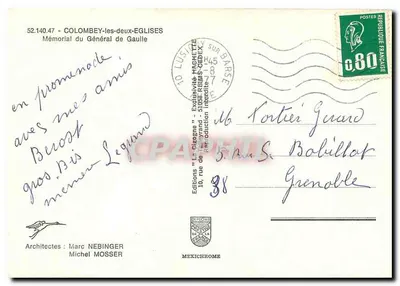 52.140.47 - COLOMBEY-les-deux-EGLISES
Mémorial du Général de Gaulle
en promenade
avec mes amis
Berost
gros Bis
memer Legrand
Architectes : Marc NEBINGER
Michel MOSSER
10 LUSIGNY sur BARSE
45
8
77
Editions "La Cigogne" - Exclusivité HACHETTE
10, rue - 51054 REIMS CEDEX
Reproduction interdite
MEXICHROME
POSTES
0,80
REPUBLIQUE FRANÇAISE
M Portier Gerard
5. Rue S. Bobillot
38 Grenoble